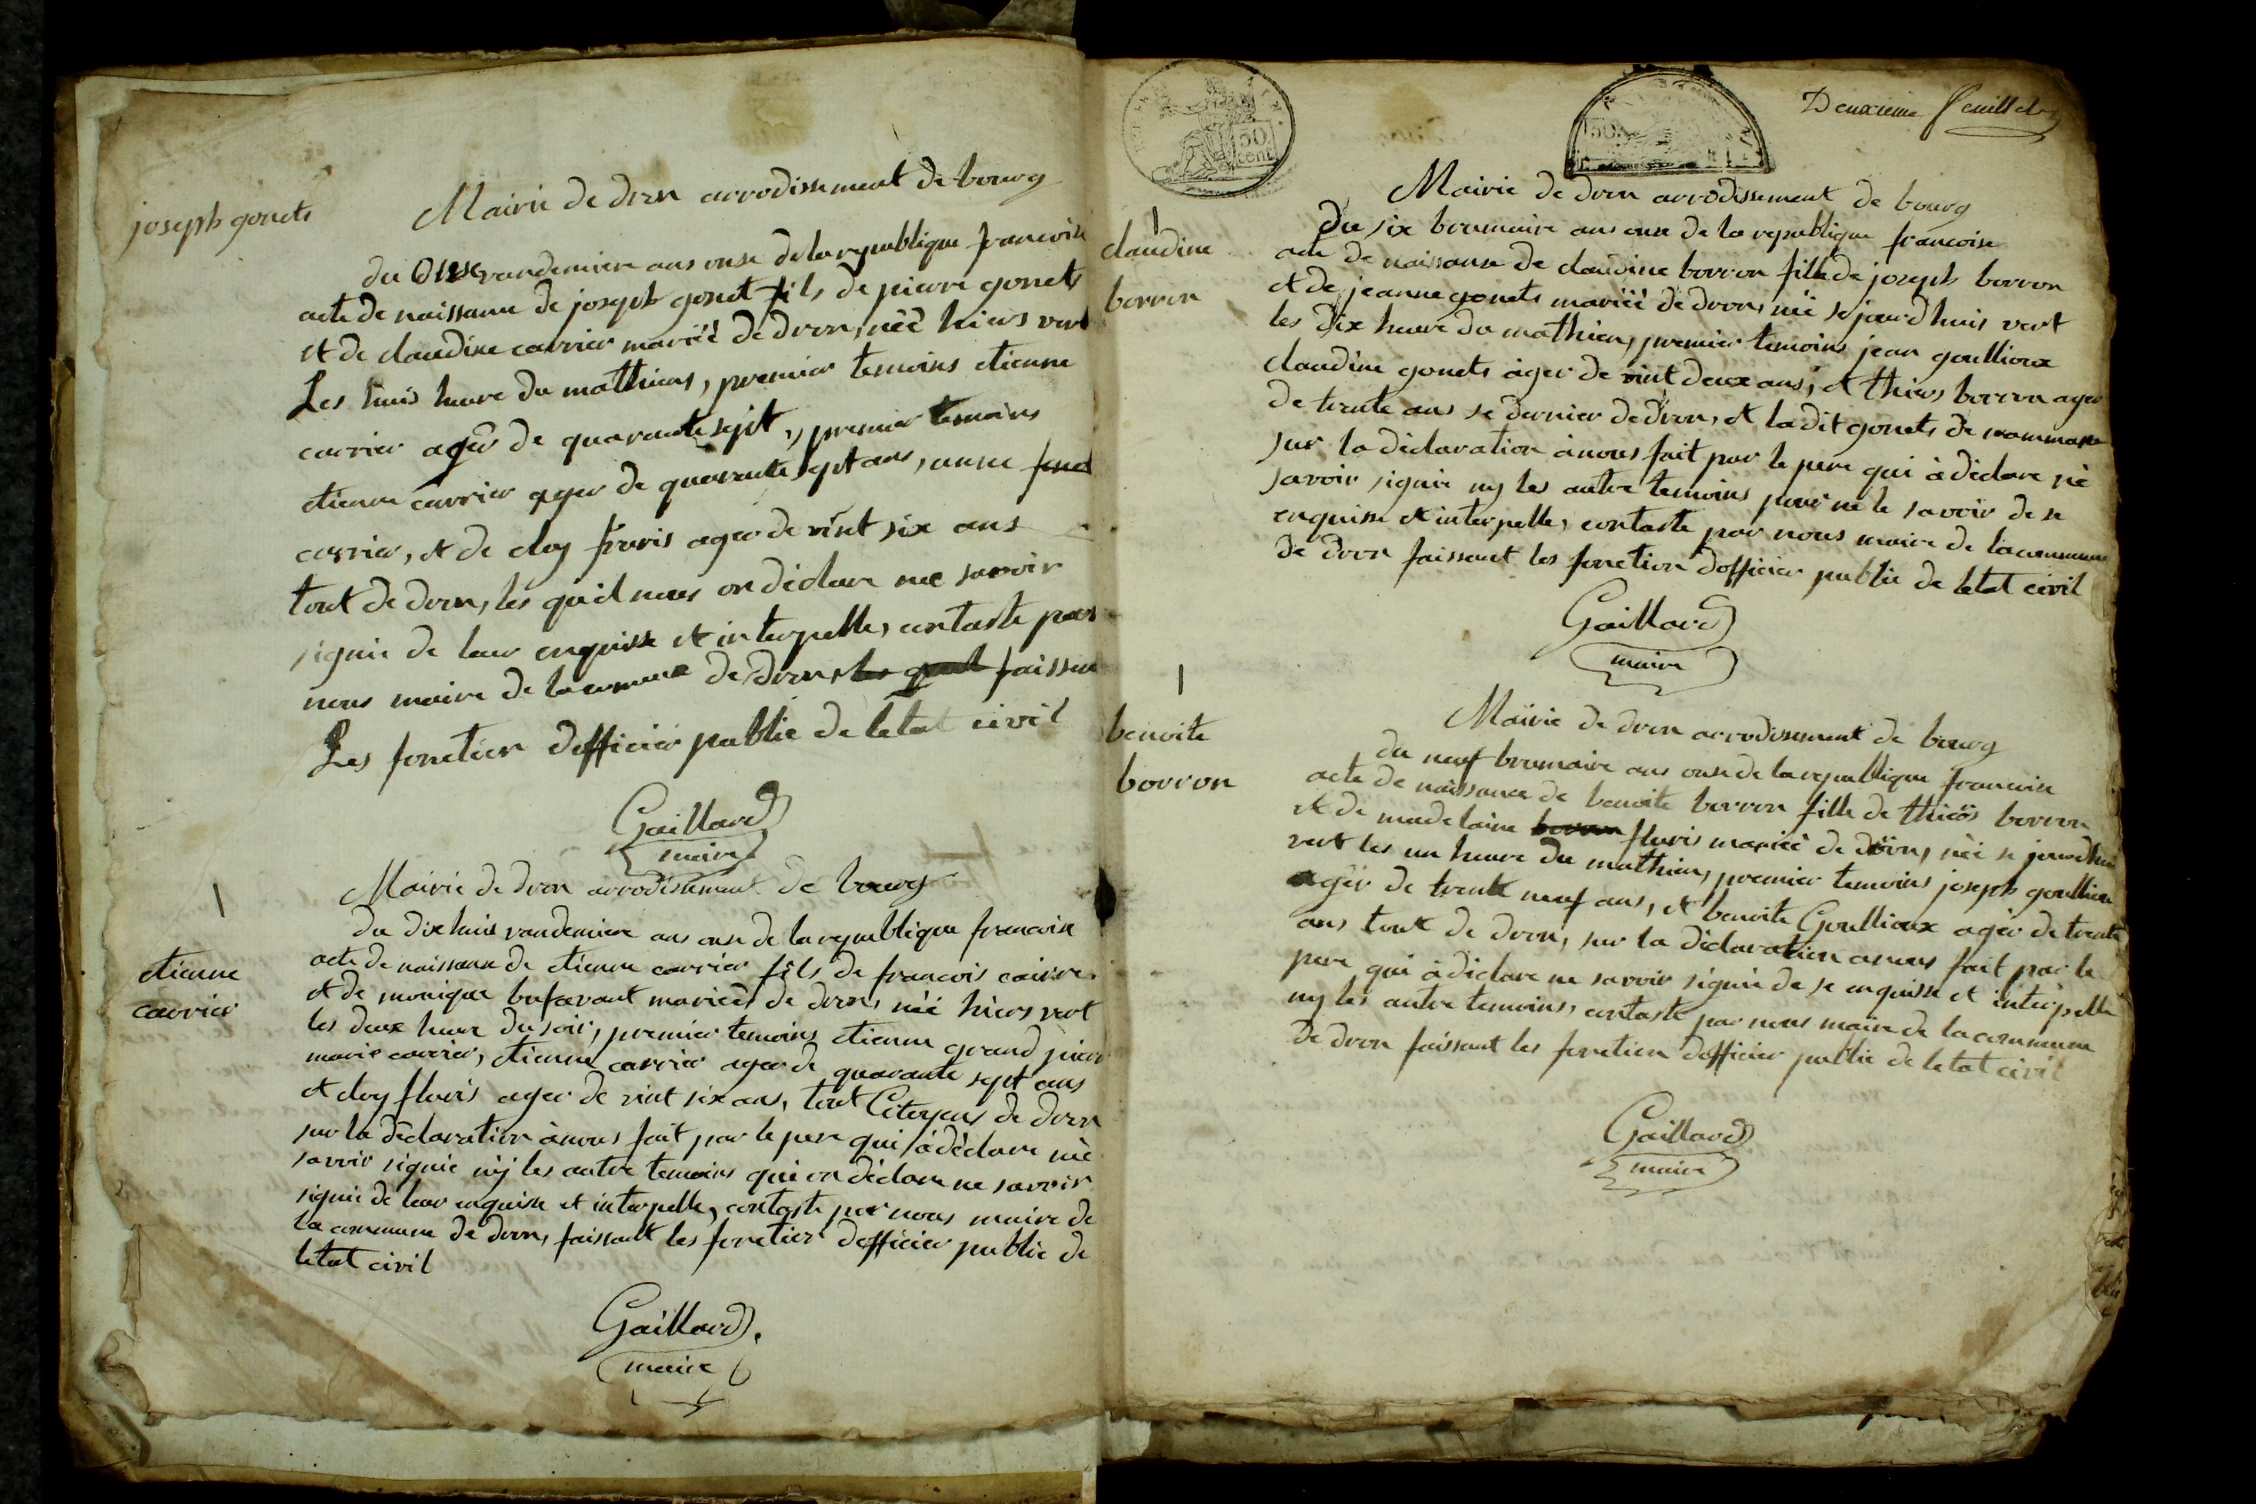 joseph gonets
Mairie de dron arrodissement de bourg
du onse vandemiere ans onse de la republique francoise
acte de naissance de joseph gonet fils de pierre gonets
et de claudine carrier mariéé de dron, néé hiers vert
Les huis heure du mathiens, premier temoins etienne
carrier ager de quarante sept, premier temoins
etienne carrier ager de quarante sept ans, anne
carrier, et de eloy floris ager de vint six ans
tout de dron, les quil nous on déclare née savoir
signie de leur enquisse et interpelle, contaste par
nous maire de la commune de dron, les quel faissen
Les fonction dofficier public de letat civil
Gaillard
maire
etienne
carrier
Mairie de dron arrodissement de bourg
du dixhuis vandemiere ans onse de la republique francoise
acte de naissance de etienne carrier fils de francois cairre
et de monique bufavant marieé de dron, néé hiers vert
les deux heure du soir, premier temoins etienne grand pierre
marie carrier, etienne carrier ager de quarante sept ans
et eloy floris ager de vint six ans, tout Citoyens de dron
sur la déclaration à nous fait par le pere qui à déclare nè
savoir signie nÿ les autre temoins qui on déclare ne savoir
signie de leur enquisse et interpelle, contaste par nous maire de
la commune de dron, faissant les fonction dofficier public de
letat civil
Gaillard
maire
Deuxieme feuillet
50
cent
50
claudine
borron
Mairie de dron arrodissement de bourg
du six brumaire ans onse de la republique francoise
acte de naissance de claudine borron fille de joseph borron
et de jeanne gonets mariéé de dron, néé se jourdhuis vert
les dix heure du mathien, premier temoins jean goullioux
claudine gonets àger de vint deux ans, et thiers borron ager
de trente ans se dernier de dron, et la dit gonets de
sur la déclaration à nous fait par le pere qui à déclare nè
savoir signie ny les autre temoins pour ne le savoir de se
enquisse et interpelle, contaste par nous maire de la commune
de dron faissant les fonction dofficier public de letat civil
Gaillard
maire
benoite
borron
Mairie de dron arrodissement de bourg
du neuf brumaire ans onse de la republique francoise
acte de naissance de benoite borron fille de thieós borron
et de madelaine borron floris marieé de dron, néè se jourdhuis
vert les un heure du mathien, premier temoins joseph goullioux
ager de trente neuf ans, et benoite Goullioux ager de trente
ans tout de dron, sur la déclaration a nous fait par le
pere qui à diclare ne savoir signie de se enquisse et interpelle
ny les autre temoins, contaste par nous maire de la commune
de dron faissant les fonction dofficier public de letat civil
Gaillard
maire